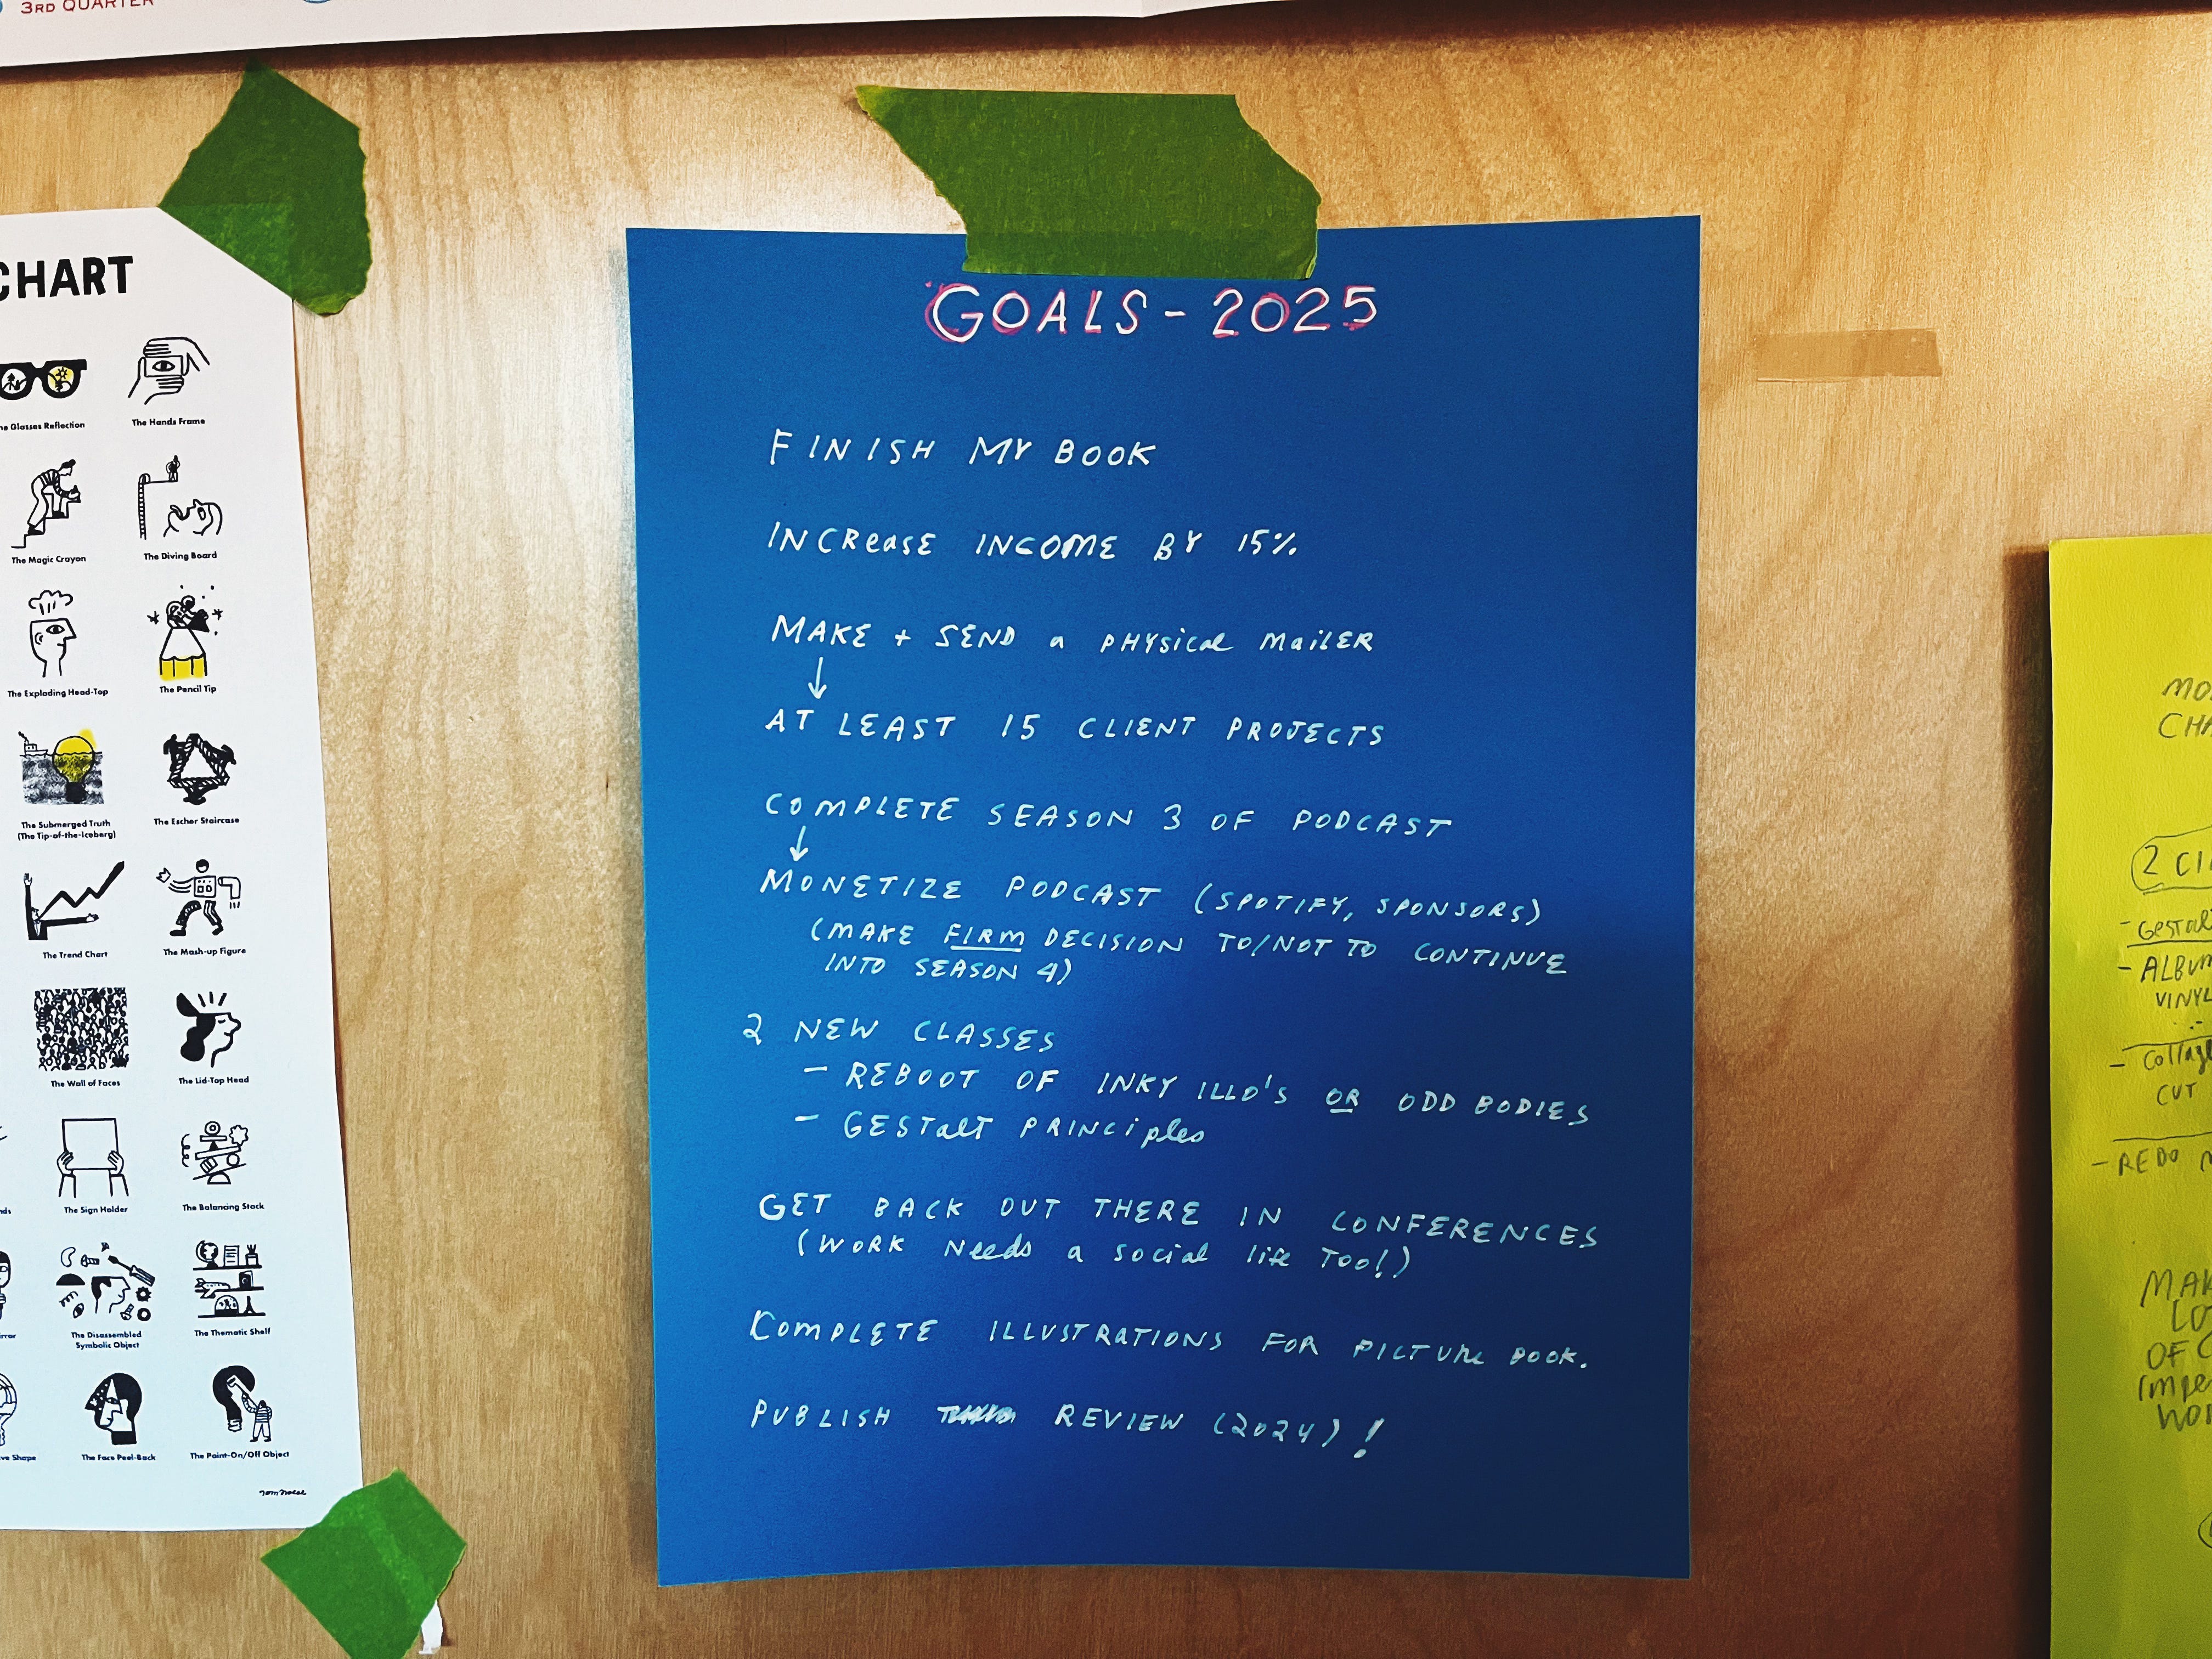 3RD QUARTER
CHART
The Glasses Reflection
The Hands Frame
The Magic Crayon
The Diving Board
The Exploding Head-Top
The Pencil Tip
The Submerged Truth
(The Tip-of-the-Iceberg)
The Escher Staircase
The Trend Chart
The Mash-up Figure
The Wall of Faces
The Lid-Top Head
The Sign Holder
The Balancing Stack
The Disassembled
Symbolic Object
The Thematic Shelf
Shape
The Face Peel-Back
The Paint-On/Off Object
GOALS - 2025
FINISH MY BOOK
INCREASE INCOME BY 15%
MAKE + SEND a PHYSICAL MAILER
↓
AT LEAST 15 CLIENT PROJECTS
COMPLETE SEASON 3 OF PODCAST
↓
MONETIZE PODCAST (SPOTIFY, SPONSORS)
(MAKE FIRM DECISION TO/NOT TO CONTINUE
INTO SEASON 4)
2 NEW CLASSES
- REBOOT OF INKY ILLO'S OR ODD BODIES
- GESTALT PRINCIPLES
GET BACK OUT THERE IN CONFERENCES
(WORK NEEDS a SOCIAL LIFE TOO!)
COMPLETE ILLUSTRATIONS FOR PICTURE BOOK.
PUBLISH REVIEW (2024)!
2
- ALBUM
VINYL
CUT
- REDO
OF